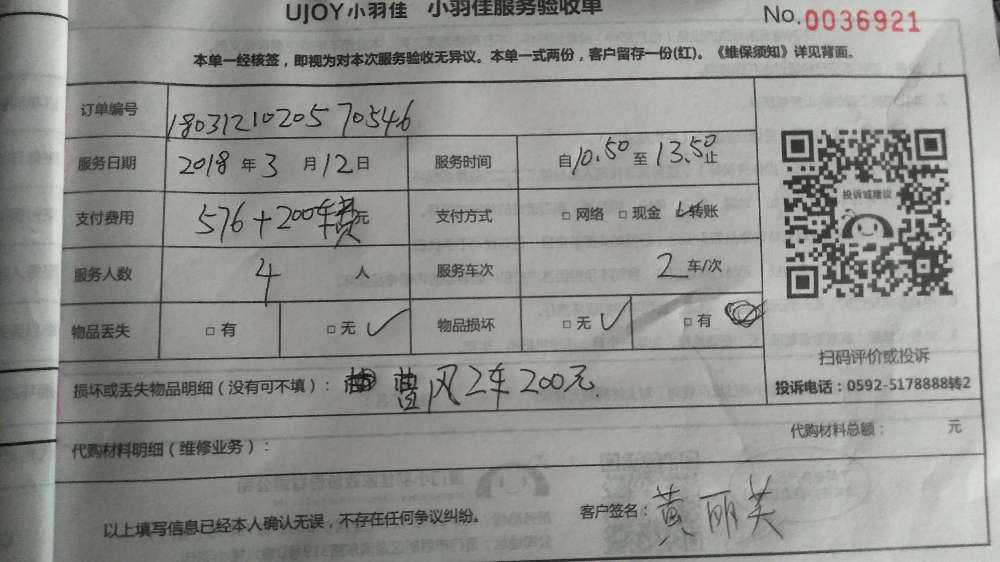 UJOY小羽佳 小羽佳服务验收单
No.0036921
本单一经核签，即视为对本次服务验收无异议。本单一式两份，客户留存一份(红)。《维保须知》详见背面。
订单编号 18031210205 70546
服务日期 2018 年 3 月 12 日 服务时间 自 10.50 至 13.50 止
支付费用 576+200车费 元 支付方式 □网络 □现金 ✓转账
服务人数 4 人 服务车次 2 车/次
物品丢失 □有 □无 ✓ 物品损坏 □无 ✓ □有
投诉或建议
扫码评价或投诉
投诉电话：0592-5178888转2
损坏或丢失物品明细（没有可不填）： 曹风2车200元
代购材料明细（维修业务）： 代购材料总额： 元
以上填写信息已经本人确认无误，不存在任何争议纠纷。 客户签名： 黄丽芙